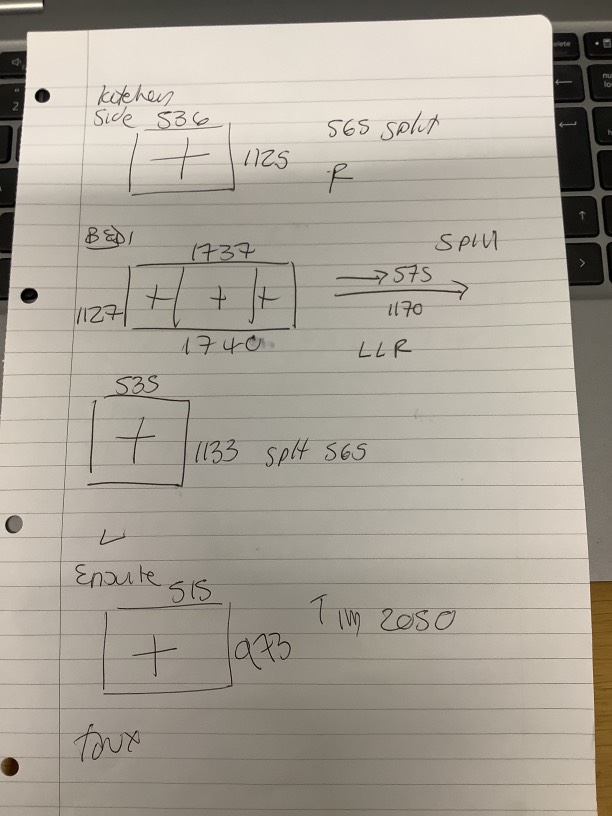 kitchen
side 536
1125
565 split
R
BED1
1737
1127
1740
split
575
1170
LLR
535
1133 split 565
L
Ensuite
515
973
Tim 2050
faux